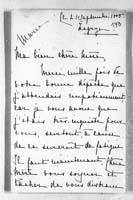 le 10 septembre 1908
Marie
Ma bien chère mère,
Merci mille fois de
votre bonne dépêche que
j'attendais impatiemment
car je vous avoue que
j'étais très inquiète pour
vous, surtout à cause
de ce surcroît de fatigue
Il faut maintenant, chère
mère vous soigner et
tâcher de vous distraire